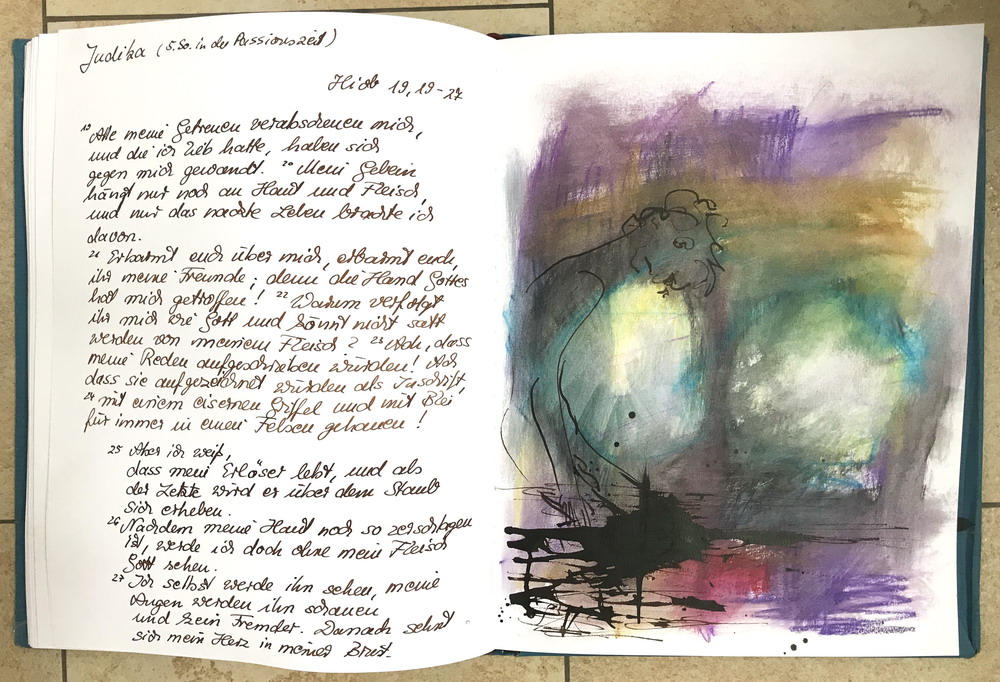 Judika (5. So. in der Passionszeit)
Hiob 19, 19-27
19 Alle meine Getreuen verabscheuen mich,
und die ich lieb hatte, haben sich
gegen mich gewandt. 20 Mein Gebein
hängt nur noch an Haut und Fleisch,
und nur das nackte Leben brachte ich
davon.
21 Erbarmt euch über mich, erbarmt euch,
ihr meine Freunde; denn die Hand Gottes
hat mich getroffen! 22 Warum verfolgt
ihr mich wie Gott und könnt nicht satt
werden von meinem Fleisch? 23 Ach, dass
meine Reden aufgeschrieben würden! Ach
dass sie aufgezeichnet würden als Inschrift,
24 mit einem eisernen Griffel und mit Blei
für immer in einen Felsen gehauen!
25 Aber ich weiß,
dass mein Erlöser lebt, und als
der Letzte wird er über dem Staub
sich erheben.
26 Nachdem meine Haut noch so zerschlagen
ist, werde ich doch ohne mein Fleisch
Gott sehen.
27 Ich selbst werde ihn sehen, meine
Augen werden ihn schauen
und kein Fremder. Danach sehnt
sich mein Herz in meiner Brust.